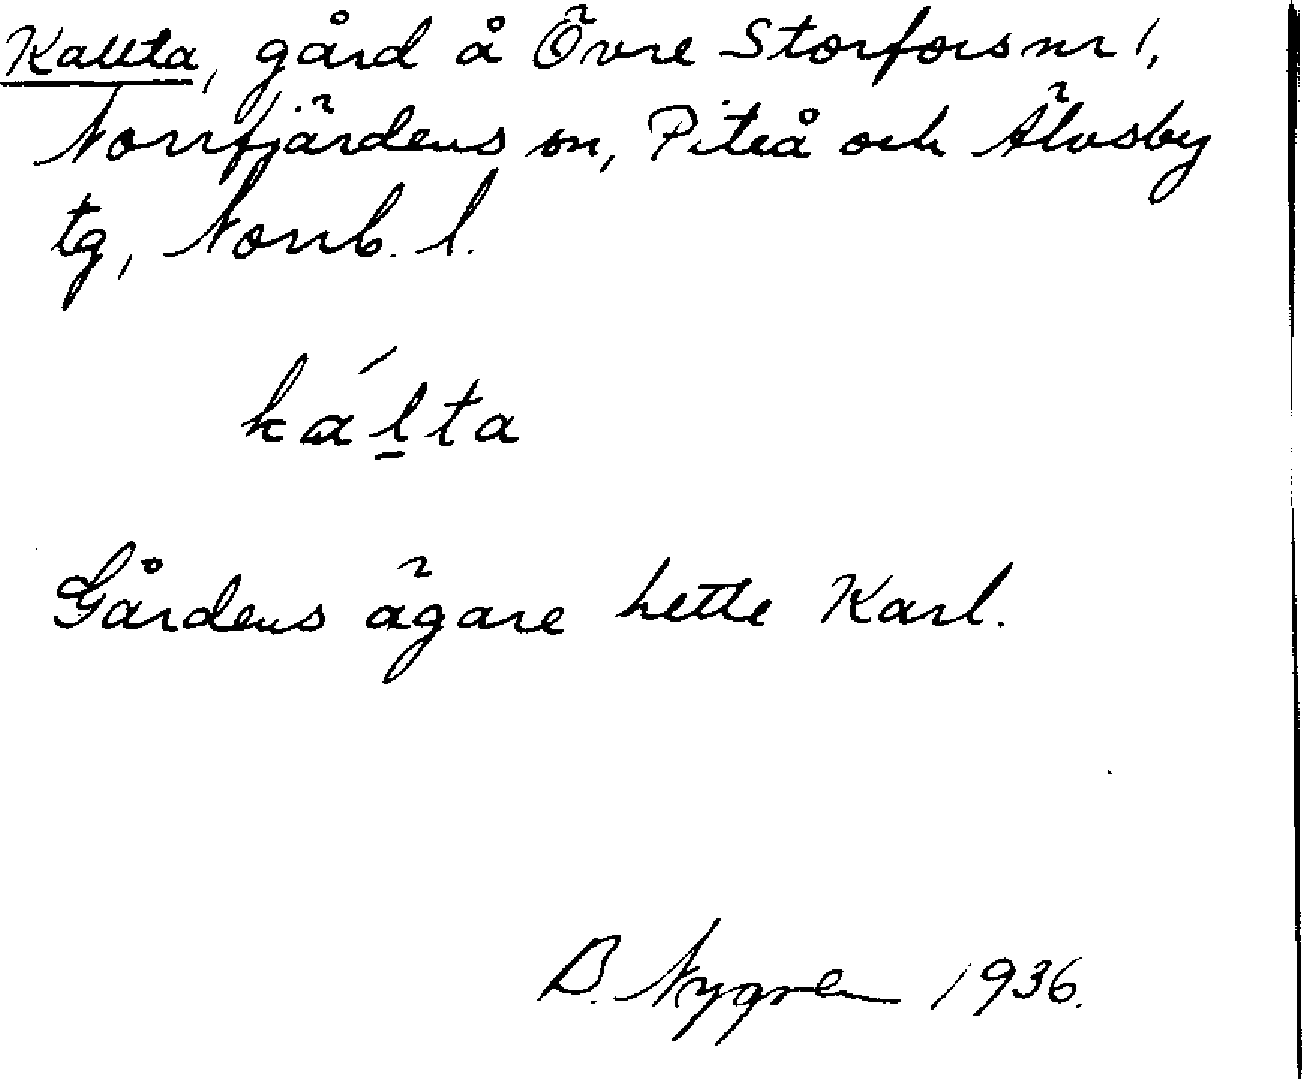 Kallta, gård å Övre Storfors nr 1,
Norrfjärdens sn, Piteå och Älvsby
tg, Norrb. l.
kál̲ta
Gårdens ägare hette Karl.
B. Nygren 1936.